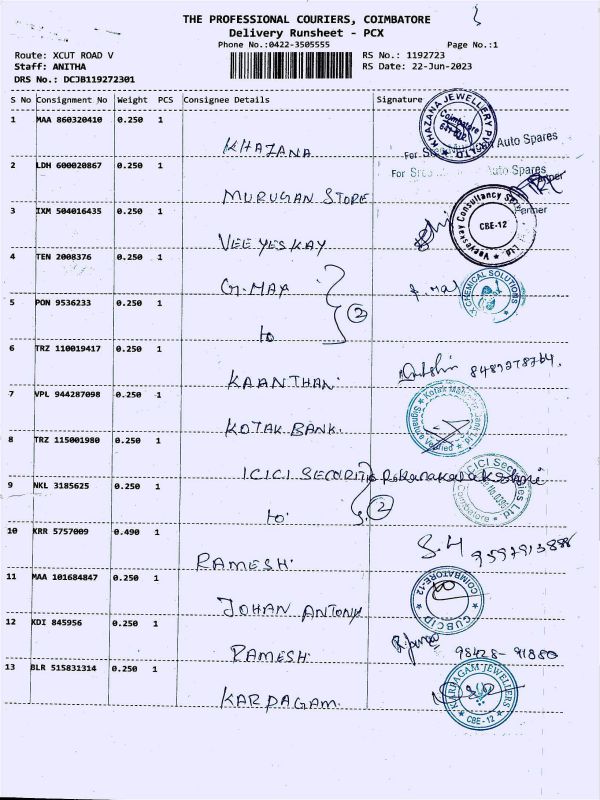 THE PROFESSIONAL COURIERS, COIMBATORE
Delivery Runsheet - PCX
Phone No.:0422-3505555 Page No.:1
Route: XCUT ROAD V RS No.: 1192723
Staff: ANITHA RS Date: 22-Jun-2023
DRS No.: DCJB119272301
S No Consignment No Weight PCS Consignee Details Signature
1 MAA 860320410 0.250 1
KHAZANA KHAZANA JEWELLERY PVT LTD Coimbatore
For Auto Spares
2 LDH 600020867 0.250 1
For Auto Spares
MURUGAN STORE
3 IXM 504016435 0.250 1
VEEYESKAY Veeyeskay Consultancy Ltd. CBE-12
4 TEN 2008376 0.250 1
G-MAX CHEMICAL SOLUTIONS
5 PON 9536233 0.250 1
to 2
6 TRZ 110019417 0.250 1
KAANTHAN.
7 VPL 944287098 0.250 1
KOTAK BANK. Kotak Signature Verified
8 TRZ 115001980 0.250 1
ICICI SECURITIES ICICI Securities Ltd Coimbatore
9 NKL 3185625 0.250 1
to 2
10 KRR 5757009 0.490 1
RAMESH. S.H
11 MAA 101684847 0.250 1
JOHAN ANTONY COIMBATORE-12
12 KDI 845956 0.250 1
RAMESH. 98428-91880
13 BLR 515831314 0.250 1
KARPAGAM. KARPAGAM JEWELLERS CBE-12